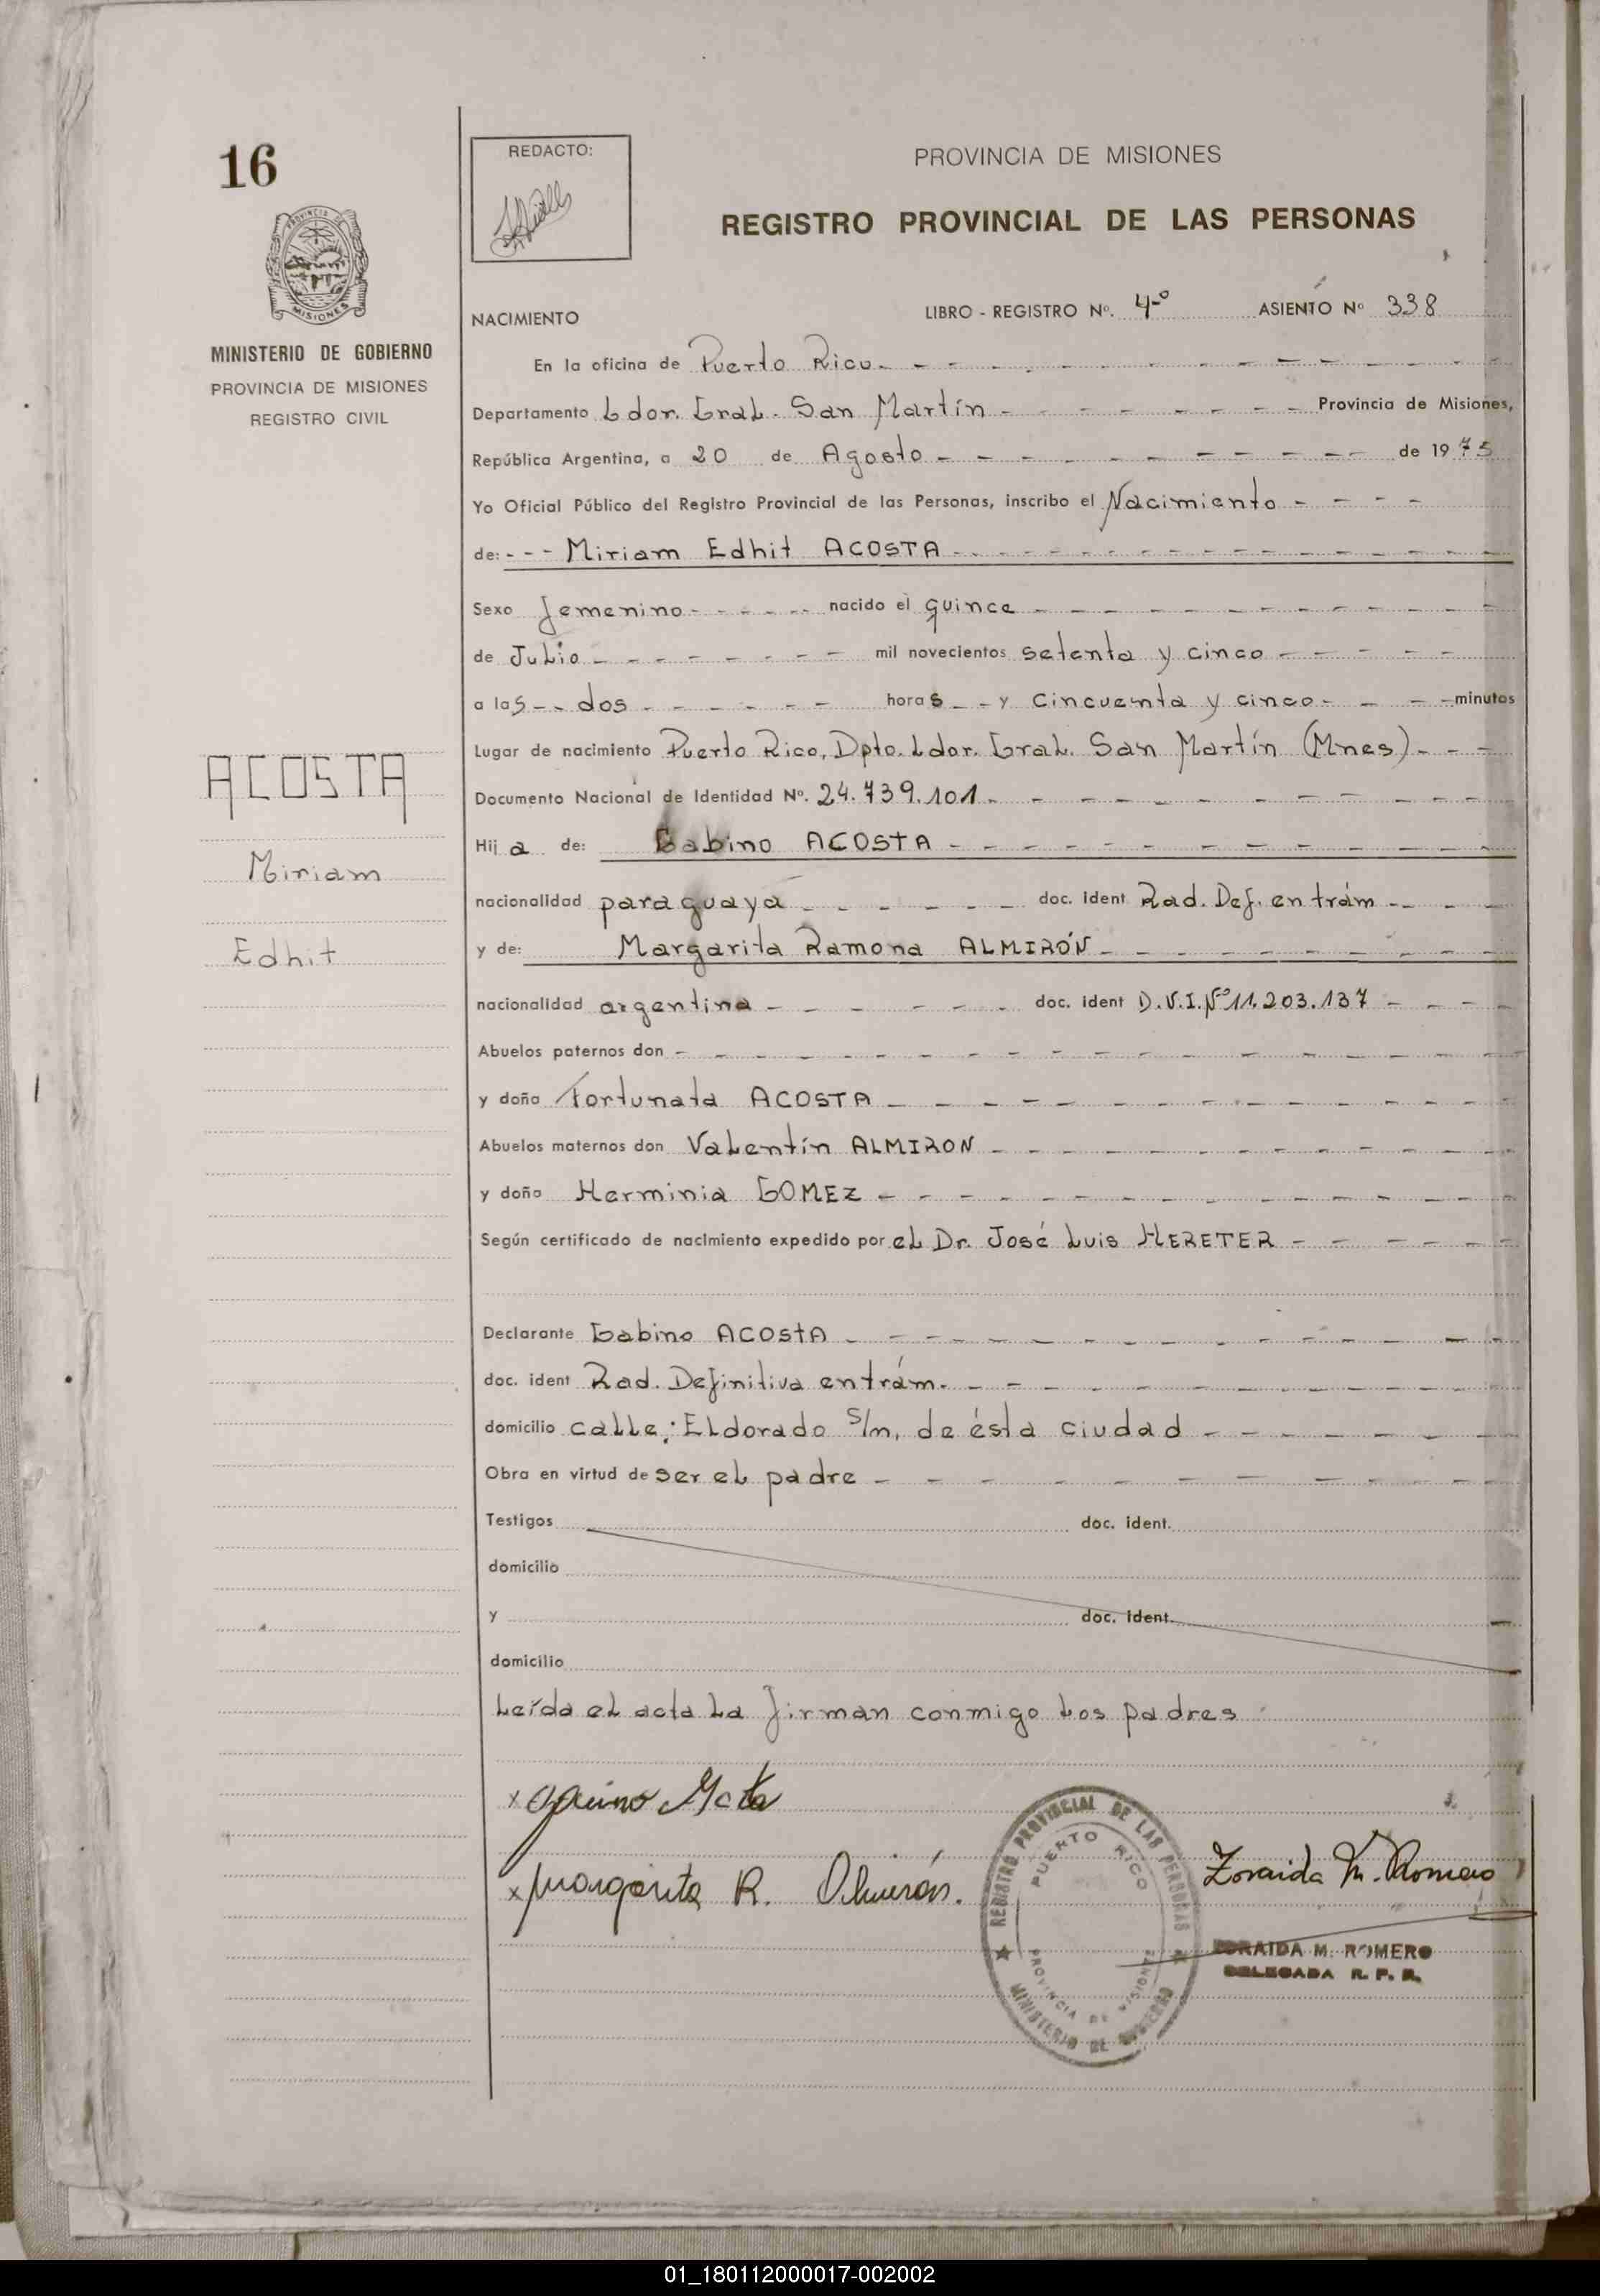 16
REDACTO:
PROVINCIA DE MISIONES
REGISTRO PROVINCIAL DE LAS PERSONAS
PROVINCIA DE
MISIONES
MINISTERIO DE GOBIERNO
PROVINCIA DE MISIONES
REGISTRO CIVIL
NACIMIENTO LIBRO - REGISTRO Nº. 4º ASIENTO Nº 338
En la oficina de Puerto Rico
Departamento Ldor. Gral. San Martín Provincia de Misiones,
República Argentina, a 20 de Agosto de 1975
Yo Oficial Público del Registro Provincial de las Personas, inscribo el Nacimiento
de: Miriam Edhit ACOSTA
Sexo femenino nacido el quince
de Julio mil novecientos setenta y cinco
a las dos horas y cincuenta y cinco minutos
Lugar de nacimiento Puerto Rico, Dpto. Ldor. Gral. San Martín (Mnes)
Documento Nacional de Identidad Nº. 24.739.101
Hija de: Gabino ACOSTA
nacionalidad paraguaya doc. ident Rad. Def. en trám
y de: Margarita Ramona ALMIRÓN
nacionalidad argentina doc. ident D.N.I. Nº 11.203.137
Abuelos paternos don
y doña Fortunata ACOSTA
Abuelos maternos don Valentín ALMIRON
y doña Herminia GOMEZ
Según certificado de nacimiento expedido por el Dr. José Luis HERETER
Declarante Gabino ACOSTA
doc. ident Rad. Definitiva en trám.
domicilio calle: Eldorado s/n, de ésta ciudad
Obra en virtud de ser el padre
Testigos doc. ident.
domicilio
y doc. ident.
domicilio
Leída el acta la firman conmigo los padres
ACOSTA
Miriam
Edhit
x
x Margarita R. Almirón.
Zoraida M. Romero
REGISTRO PROVINCIAL DE LAS PERSONAS
PUERTO RICO
PROVINCIA DE MISIONES
MINISTERIO DE GOBIERNO
ZORAIDA M. ROMERO
DELEGADA R. P. P.
01_180112000017-002002